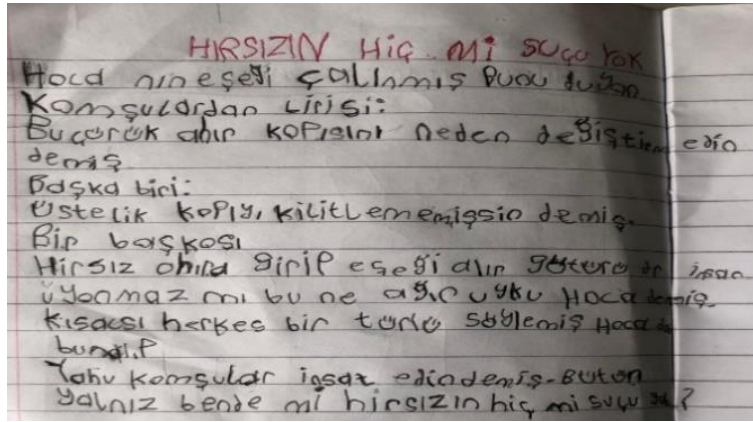 HIRSIZIN HiÇ Mi SUÇU YOK
Hoca nın eşeği çalınmış bunu duyan
Komşulardan birisi:
Bu çürük ahır kapısını neden değiştirmedin
demiş
Başka biri:
Üstelik kapıyı kilitlememişsin demiş.
Bir başkası
Hirsız ahıra girip eşeği alıp götürür insan
uyanmaz mı bu ne ağır uyku Hoca demiş.
Kısacsı herkes bir türlü söylemiş Hoca da
bunalıp
Yahu komşular insaf edin demiş-Bütün
yalnız bende mi hirsızın hiç mi suçu yok?